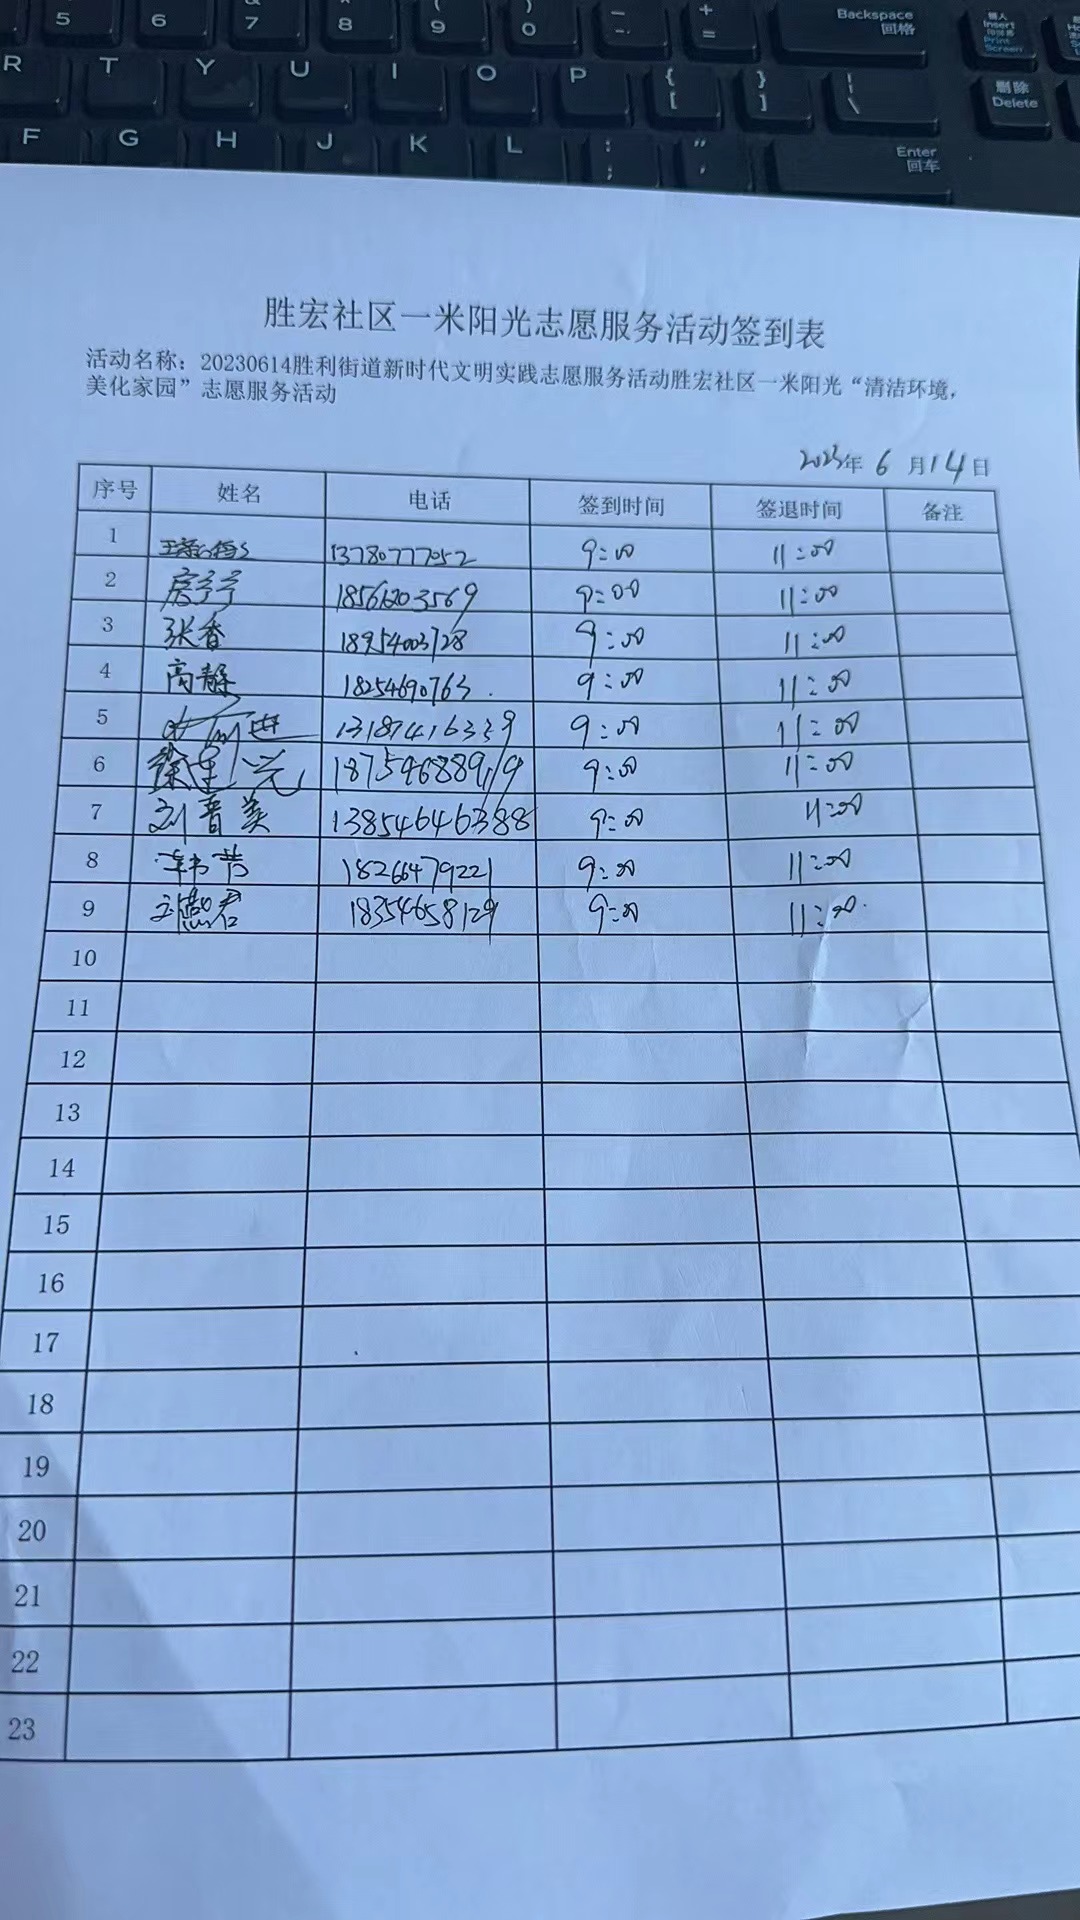 5 6 & 7 * 8 ( 9 ) 0 — - + = Backspace 回格 插入 Insert Print Screen
R T Y U I O P { [ } ] | \ 删除 Delete
F G H J K L : ; " ' Enter 回车
胜宏社区一米阳光志愿服务活动签到表
活动名称：20230614胜利街道新时代文明实践志愿服务活动胜宏社区一米阳光“清洁环境，
美化家园”志愿服务活动
2023年 6 月14日
序号 姓名 电话 签到时间 签退时间 备注
1 13780777052 9:00 11:00
2 房宁宁 18561203569 9:00 11:00
3 张香 18954003728 9:00 11:00
4 高静 18254690763 9:00 11:00
5 13187416339 9:00 11:00
6 9:00 11:00
7 刘晋美 13854646388 9:00 11:00
8 18266479221 9:00 11:00
9 18354658129 9:00 11:00
10
11
12
13
14
15
16
17
18
19
20
21
22
23